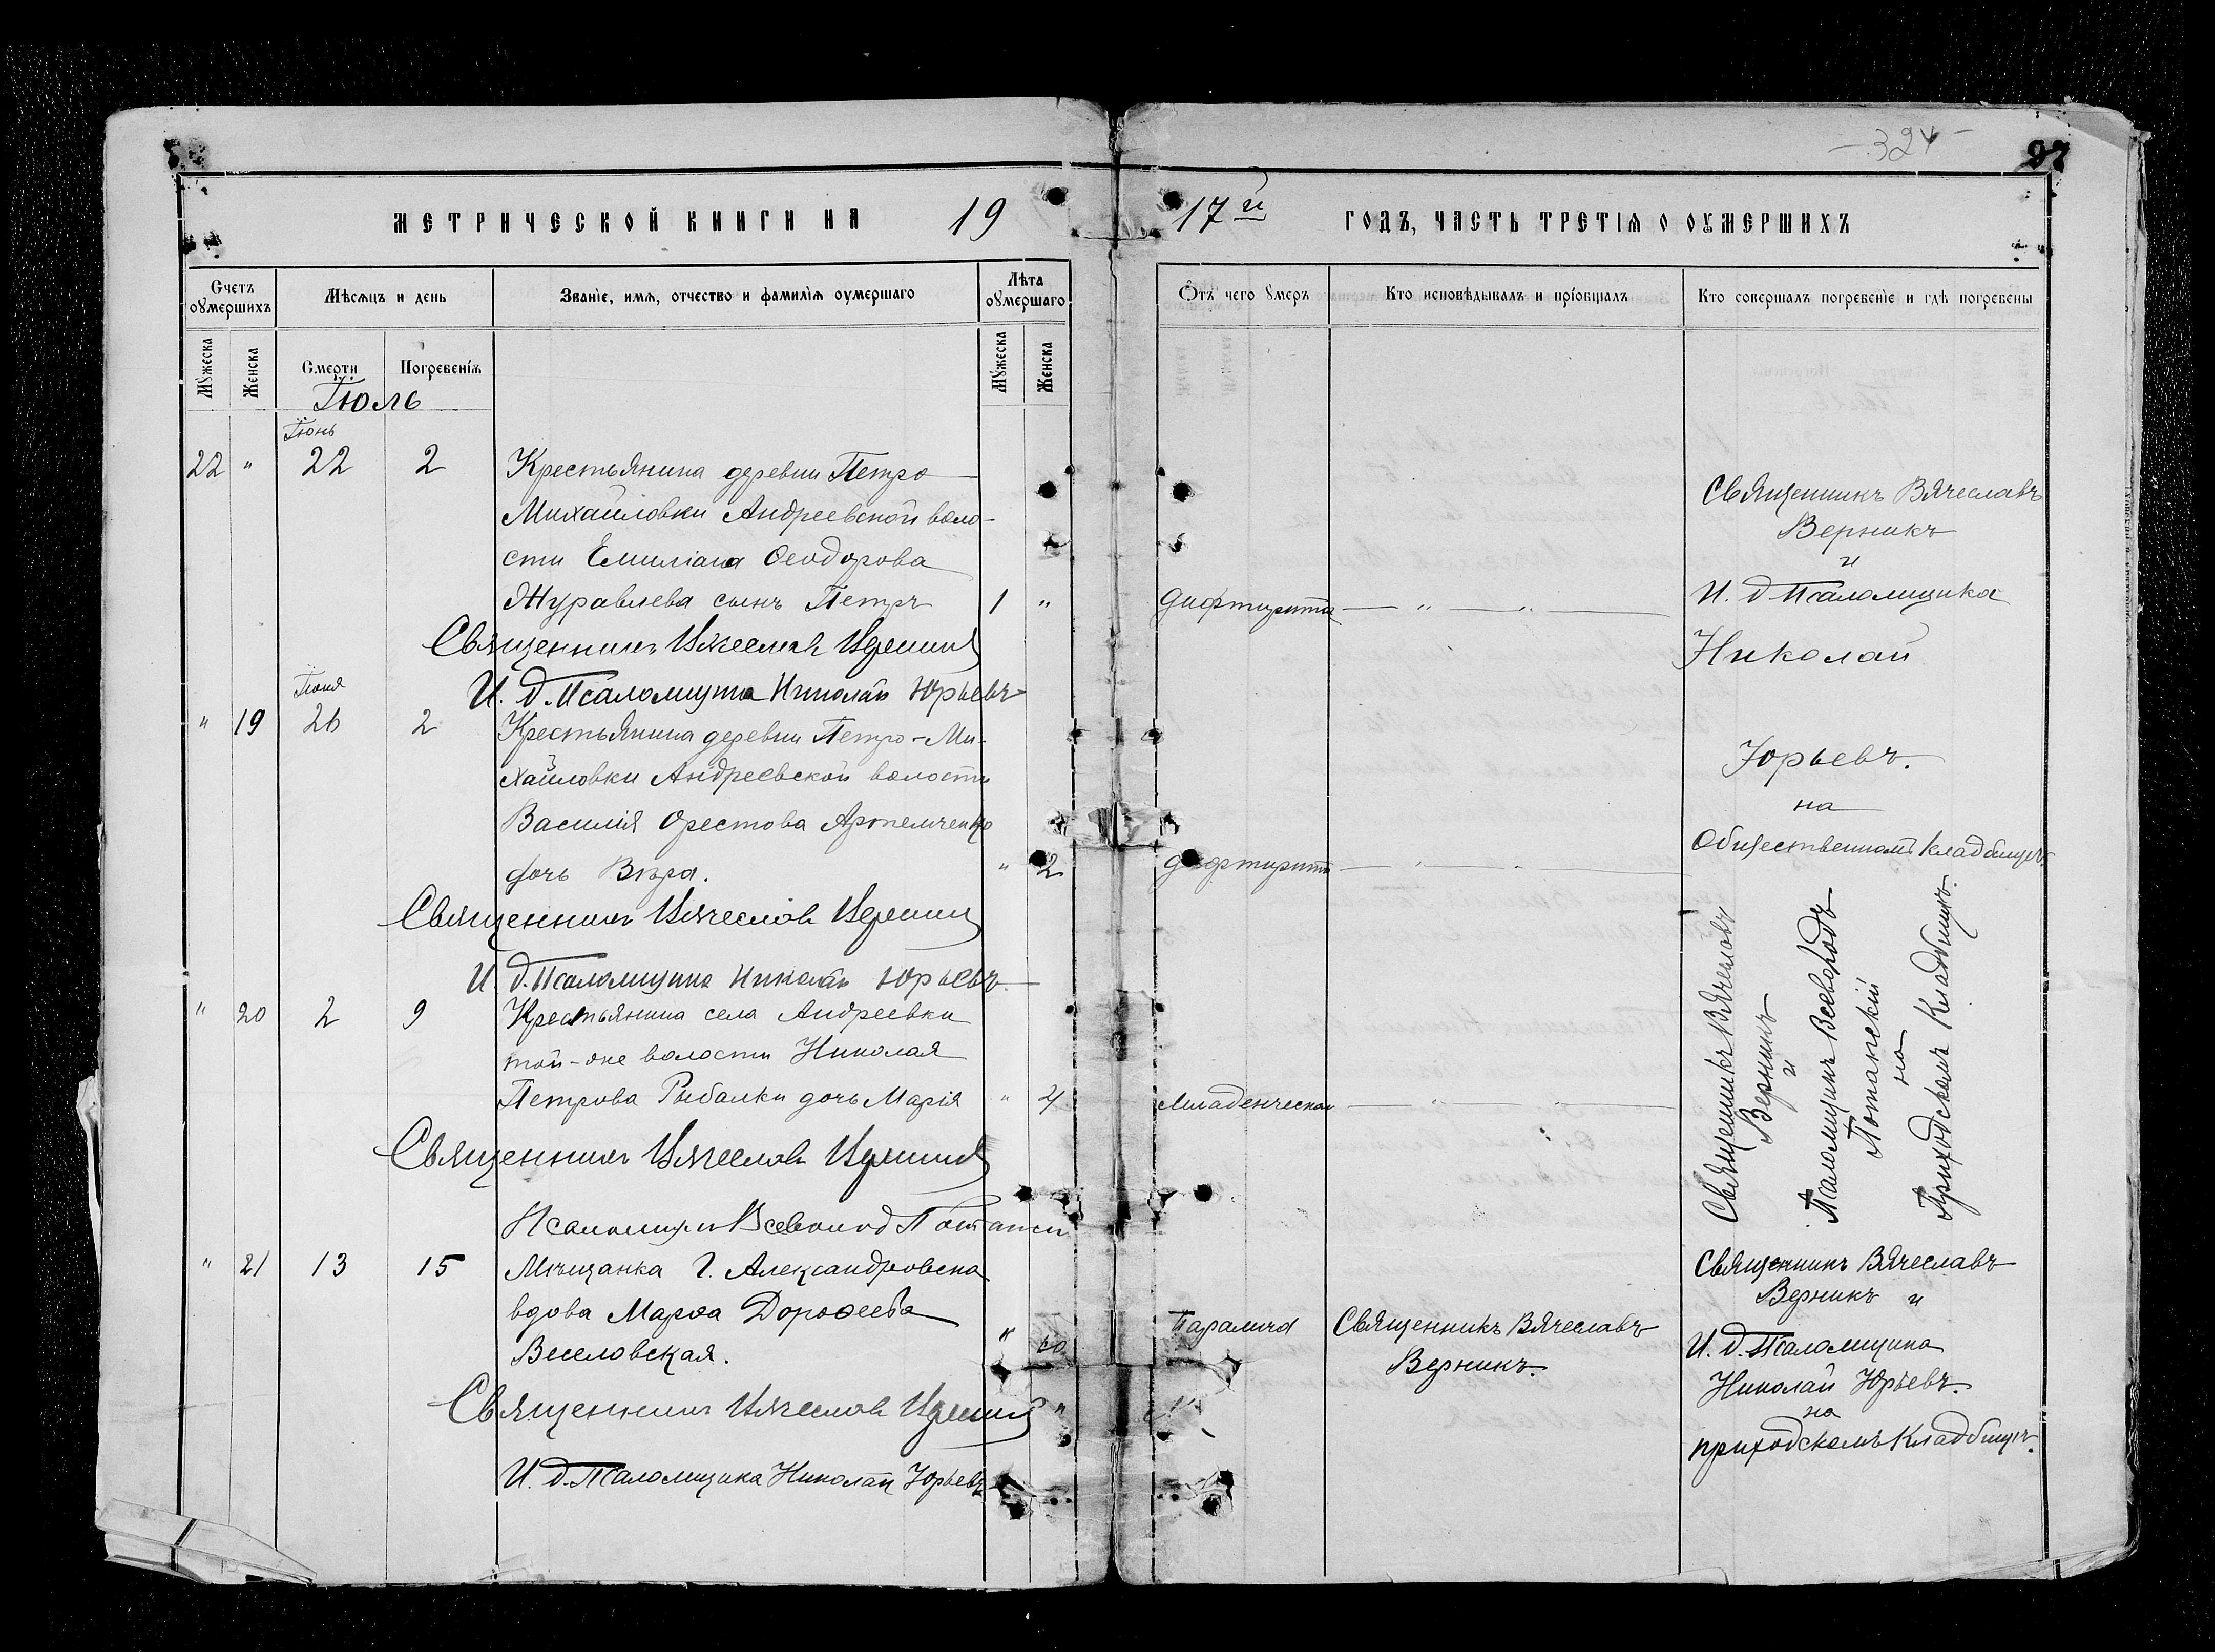 – 324 –
97
МЕТРИЧЕСКОЙ КНИГИ НА 19
17й ГОДЪ, ЧАСТЬ ТРЕТІЯ О ОУМЕРШИХЪ
Счетъ оумершихъ
Мѣсяцъ и день
Званіе, имя, отчество и фамилія оумершаго
Лѣта оумершаго
Отъ чего умеръ
Кто исповѣдывалъ и пріобщалъ
Кто совершалъ погребеніе и гдѣ погребены
Мужеска
Женска
Смерти
Погребенія
Мужеска
Женска
Іюль
Іюнь
22 " 22 2 Крестьянина деревни Петро-
Михайловки Андреевской воло-
сти Емиліана Ѳеодорова
Журавлева сынъ Петръ 1 " дифтирита — " — " —
Священникъ Вячеславъ
Верникъ
и
И. д. Псаломщика
Николай
Юрьевъ.
на
Общественномъ кладбищѣ.
Священникъ Вячеславъ Верникъ
И. д. Псаломщика Николай Юрьевъ
Іюня
" 19 26 2 Крестьянина деревни Петро-Ми-
хайловки Андреевской волости
Василія Орестова Артемченко
дочь Вѣра. " 2 дифтирита — " — " —
Священникъ Вячеславъ Верникъ
И. д. Псаломщика Николай Юрьевъ.
" 20 2 9 Крестьянина села Андреевки
той-же волости Николая
Петрова Рыбалки дочь Марія " 4 младенческой — " — " —
Священникъ Вячеславъ
Верникъ
и
Псаломщикъ Всеволодъ
Потапскій
на
Приходскомъ Кладбищѣ.
Священникъ Вячеславъ Верникъ
Псаломщикъ Всеволод
" 21 13 15 Мѣщанка г. Александровска
вдова Марѳа Дороѳеева
Веселовская. "
Паралича
Священникъ Вячеславъ
Верникъ.
Священникъ Вячеславъ
Верникъ и
И. д. Псаломщика
Николай Юрьевъ.
на
приходскомъ Кладбищѣ.
Священникъ Вячеславъ Верникъ
И. д. Псаломщика Николай Юрьевъ